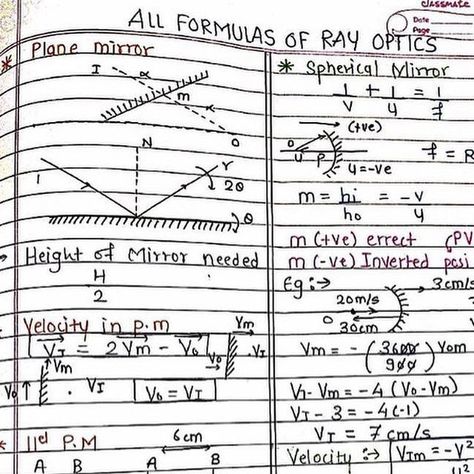 classmate
Date
Page
ALL FORMULAS OF RAY OPTICS
* Plane mirror
I
α
m
x
O
N
i
r
2θ
θ
Height of Mirror needed
H
2
Velocity in p.m
Vm
V⃗I = 2V⃗m - V⃗o
Vo
.VI
Vm
Vo ↑
. VI
Vo = VI
* 11el P.M
6cm
A B A B
* Spherical Mirror
1/v + 1/u = 1/f
(+ve)
O
u
P
u=-ve
f = R
m = hi/ho = -v/u
m (+ve) errect
m (-ve) Inverted
Eg :→
3cm/s
20m/s
O
30cm
Vm = - (3600/900) Vom
VI - Vm = -4 (Vo-Vm)
VI - 3 = -4(-1)
VI = 7 cm/s
Velocity :→ VIm = -V²